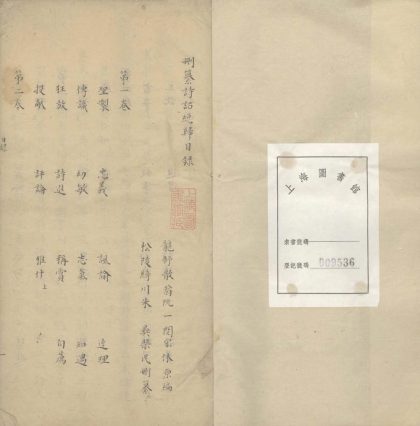 上海圖書館
索書號碼
登記號碼 009536
刪纂詩話總歸目錄
龍舒散翁阮一閱宏休原編
松陵綺川朱 奕槃民刪纂
第一卷
聖製 忠義 諷諭 達理
傳識 幼敏 志氣 知遇
狂放 詩進 稱賞 自薦
投獻 評論 雅什上
第二卷
目錄